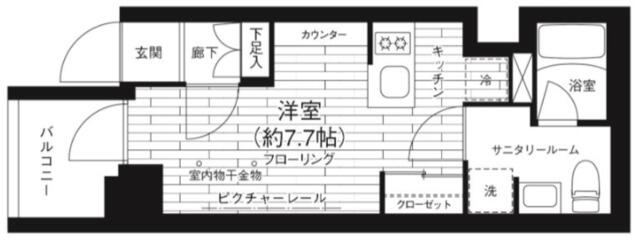 玄関
廊下
下足入
カウンター
キッチン
冷
浴室
洋室
(約7.7帖)
フローリング
サニタリールーム
バルコニー
室内物干金物
ピクチャーレール
クローゼット
洗